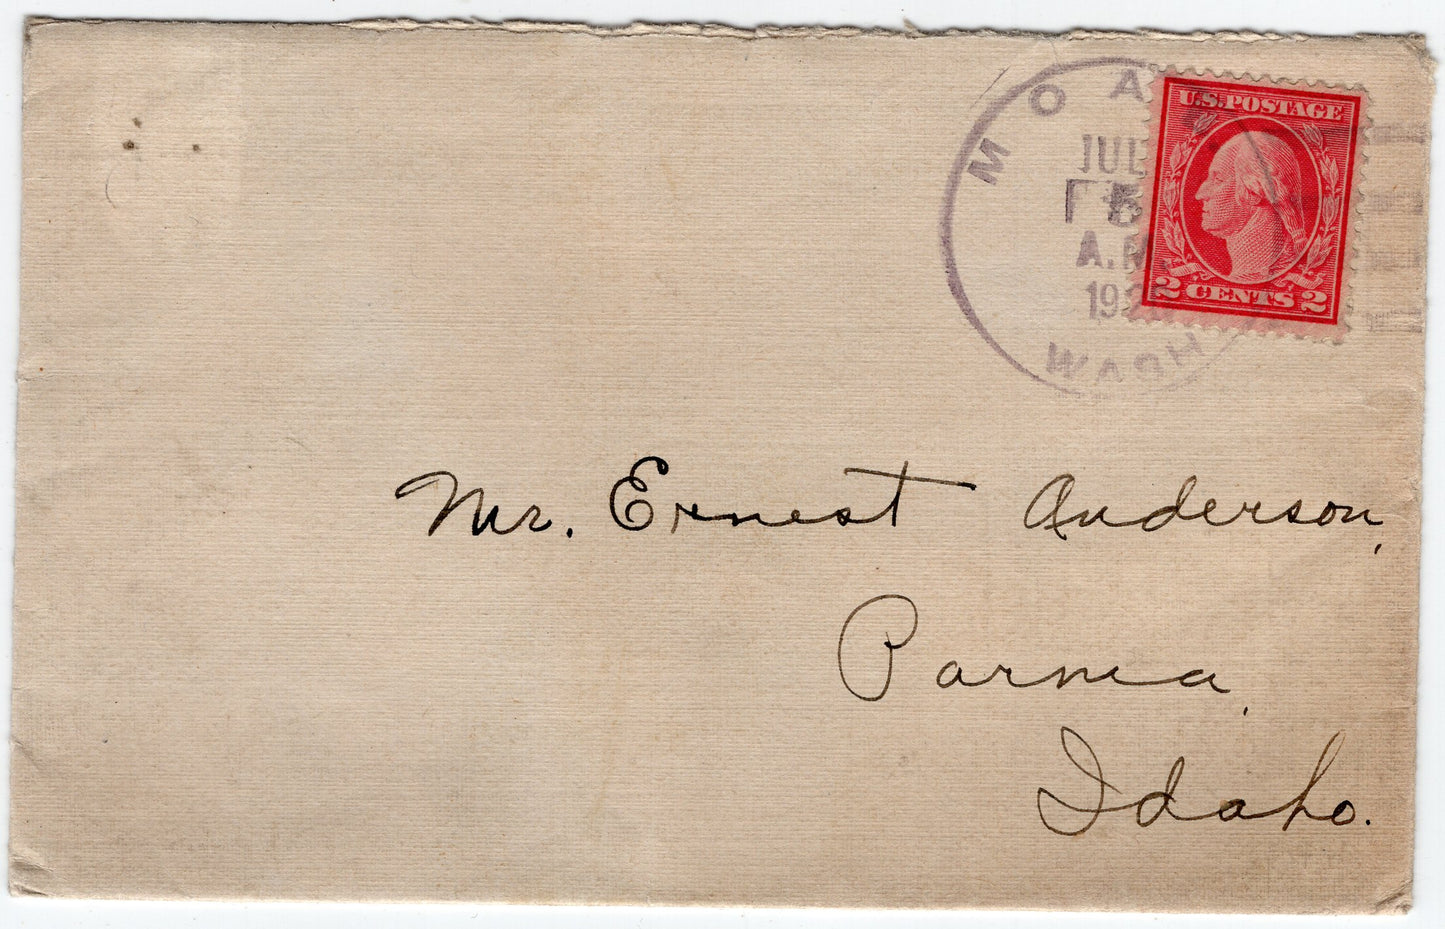 MOA
JUL
15
A.M.
192
WASH
U.S. POSTAGE
2 CENTS 2
Mr. Ernest Anderson,
Parma,
Idaho.